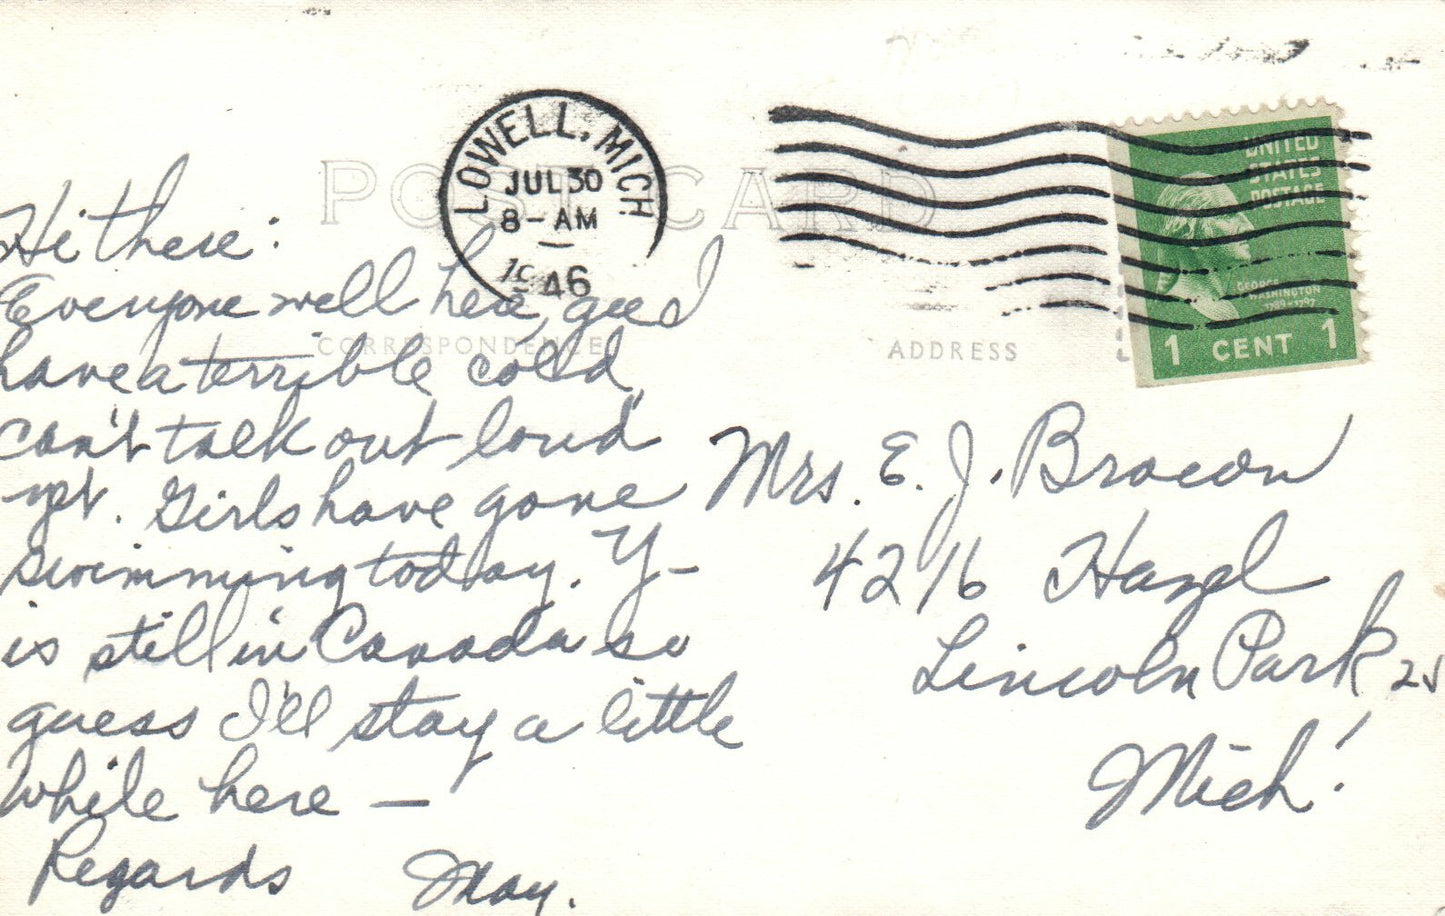 POST CARD
LOWELL, MICH
JUL 30
8-AM
1946
UNITED
STATES
POSTAGE
GEORGE
WASHINGTON
1789-1797
1 CENT 1
CORRESPONDENCE
ADDRESS
Hi there:
Everyone well here,
have a terrible cold,
can't talk out loud
yet. Girls have gone
swimming today. Y-
is still in Canada so
guess I'll stay a little
while here —
Regards May.
Mrs. E. J. Brown
4216 Hazel
Lincoln Park 25
Mich.